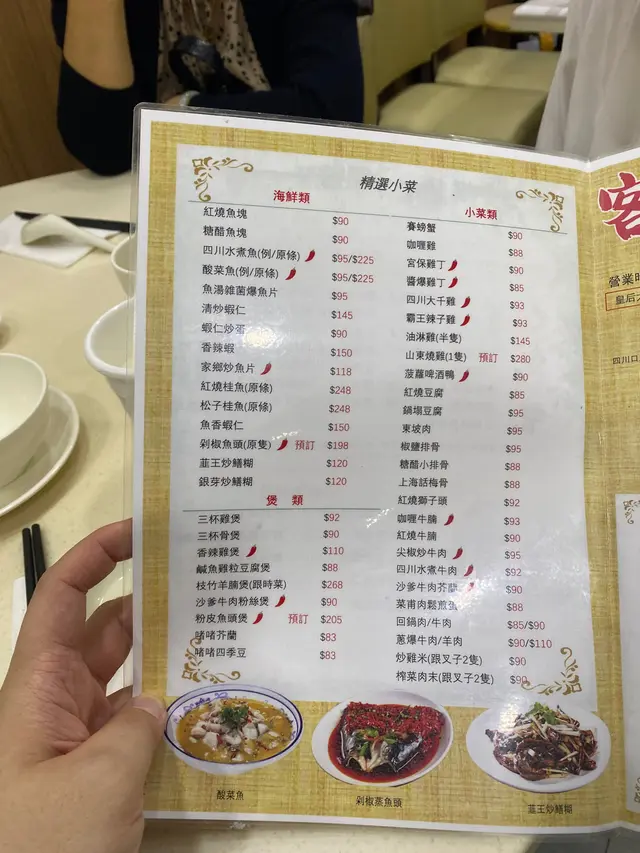 精選小菜
海鮮類
紅燒魚塊 $90
糖醋魚塊 $90
四川水煮魚(例/原條) $95/$225
酸菜魚(例/原條) $95/$225
魚湯雜菌爆魚片 $95
清炒蝦仁 $145
蝦仁炒蛋 $90
香辣蝦 $150
家鄉炒魚片 $118
紅燒桂魚(原條) $248
松子桂魚(原條) $248
魚香蝦仁 $150
剁椒魚頭(原隻) 預訂 $198
韮王炒鱔糊 $120
銀芽炒鱔糊 $120
煲 類
三杯雞煲 $92
三杯骨煲 $90
香辣雞煲 $110
鹹魚雞粒豆腐煲 $88
枝竹羊腩煲(跟時菜) $268
沙爹牛肉粉絲煲 $90
粉皮魚頭煲 預訂 $205
啫啫芥蘭 $83
啫啫四季豆 $83
小菜類
賽螃蟹 $90
咖喱雞 $88
宮保雞丁 $90
醬爆雞丁 $85
四川大千雞 $93
霸王辣子雞 $93
油淋雞(半隻) $145
山東燒雞(1隻) 預訂 $280
菠蘿啤酒鴨 $90
紅燒豆腐 $85
鍋塌豆腐 $95
東坡肉 $95
椒鹽排骨 $95
糖醋小排骨 $88
上海話梅骨 $88
紅燒獅子頭 $92
咖喱牛腩 $93
紅燒牛腩 $90
尖椒炒牛肉 $95
四川水煮牛肉 $92
沙爹牛肉芥蘭 $90
菜甫肉鬆煎蛋 $88
回鍋肉/牛肉 $85/$90
蔥爆牛肉/羊肉 $90/$110
炒雞米(跟叉子2隻) $90
榨菜肉末(跟叉子2隻) $90
酸菜魚
剁椒蒸魚頭
韮王炒鱔糊
客
營業時
皇后大
四川口